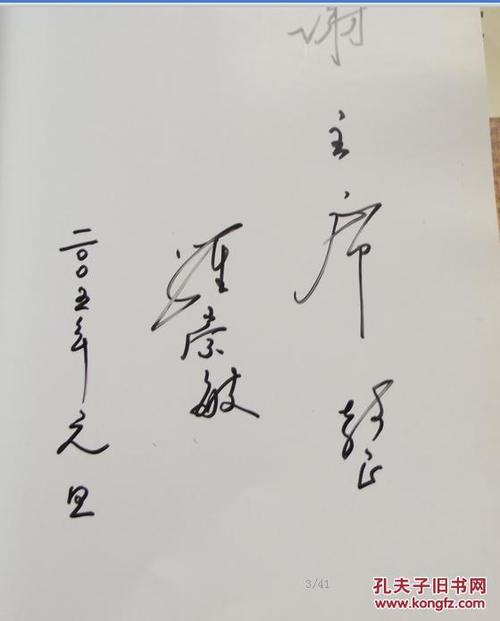 谢主席
教正
罗崇敏
二〇〇五年元旦
3/41
孔夫子旧书网
www.kongfz.com